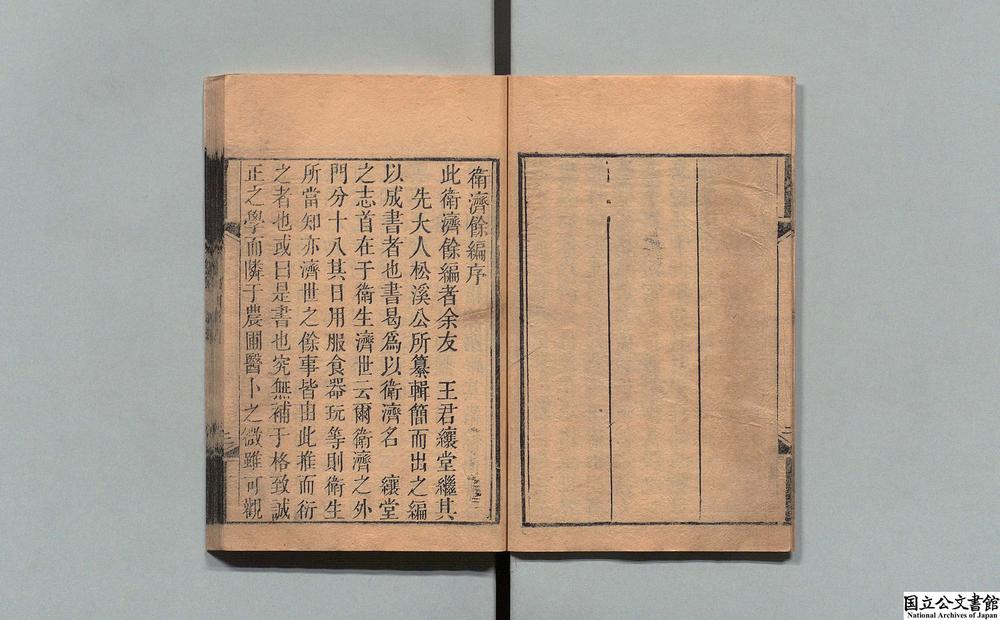 衛濟餘編序
此衛濟餘編者余友　王君纕堂繼其
先大人松溪公所纂輯簡而出之編
以成書者也書曷爲以衛濟名　纕堂
之志首在于衛生濟世云爾衛濟之外
門分十八其日用服食器玩等則衛生
所當知亦濟世之餘事皆由此推而衍
之者也或曰是書也究無補于格致誠
正之學而隣于農圃醫卜之微雖可觀
国立公文書館
National Archives of Japan